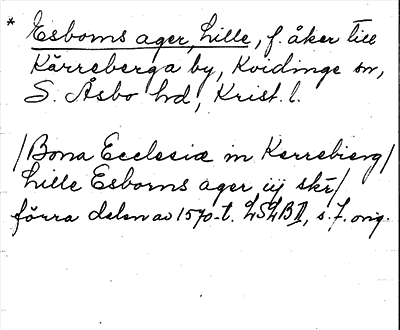 * Esborns ager, Lille, f. åker till
Kärreberga by, Kvidinge sn,
S. Åsbo hd, Krist. l.
/Bona Ecclesiæ in Kerrebierg/
Lille Esborns ager iij skr/
förra delen av 1570-t. LSLB II, s. 7. orig.